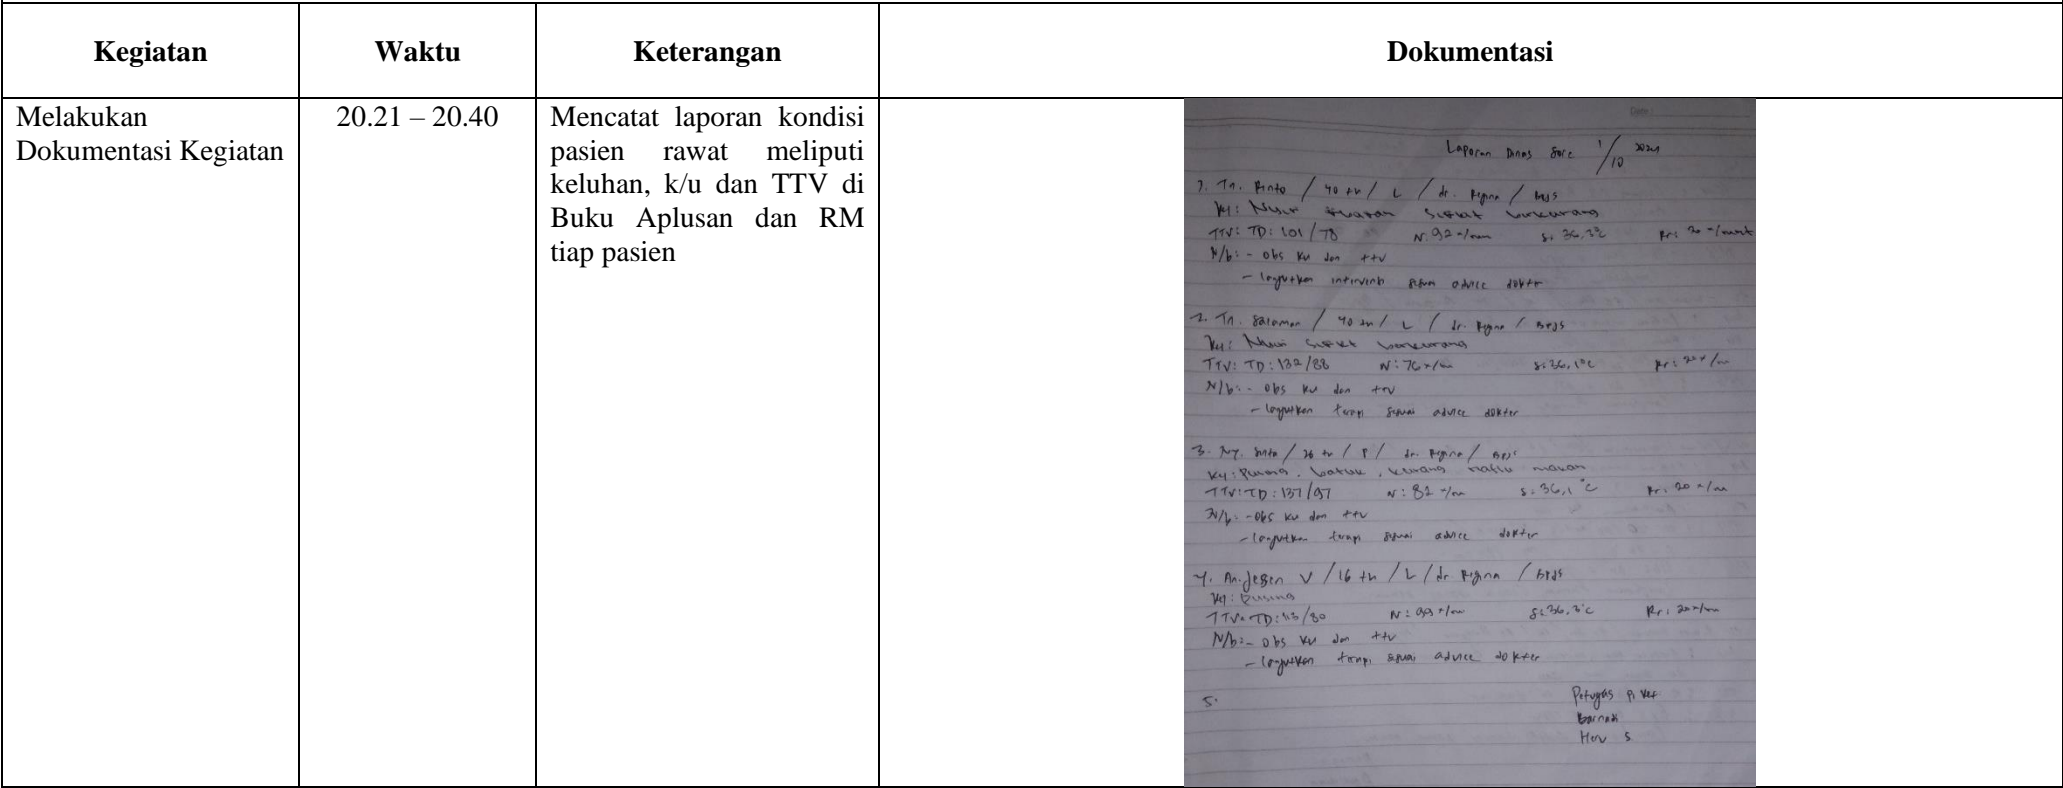 Kegiatan
Waktu
Keterangan
Dokumentasi
Melakukan
Dokumentasi Kegiatan
20.21 – 20.40
Mencatat laporan kondisi
pasien rawat meliputi
keluhan, k/u dan TTV di
Buku Aplusan dan RM
tiap pasien
Date:
Laporan Dinas Sore 1/10 2024
1. Tn. / 40 th / L / dr. Regina / BPJS
Key: Nyeri berkurang
TTV: TD: 101/78 N: 92 x/ S: 36,3°C Rr: 20 x/menit
N/b: - Obs ku dan ttv
- lanjutkan intervensi sesuai advice dokter
2. Tn. / 40 th / L / dr. Regina / BPJS
Key: Nyeri berkurang
TTV: TD: 132/88 N: 76 x/m S: 36,1°C Rr: 20 x/m
N/b: - Obs ku dan ttv
- lanjutkan terapi sesuai advice dokter
3. Ny. / th / P / dr. Regina / BPJS
Key: Pusing, batuk, kurang nafsu makan
TTV: TD: 137/97 N: 82 x/m S: 36,1°C Rr: 20 x/m
N/b: - Obs ku dan ttv
- lanjutkan terapi sesuai advice dokter
4. An. V / 16 th / L / dr Regina / BPJS
Key: Pusing
TTV: TD: 113/80 N: 99 x/m S: 36,3°C Rr: 20 x/m
N/b: - Obs ku dan ttv
- lanjutkan terapi sesuai advice dokter
5.
Petugas Piket